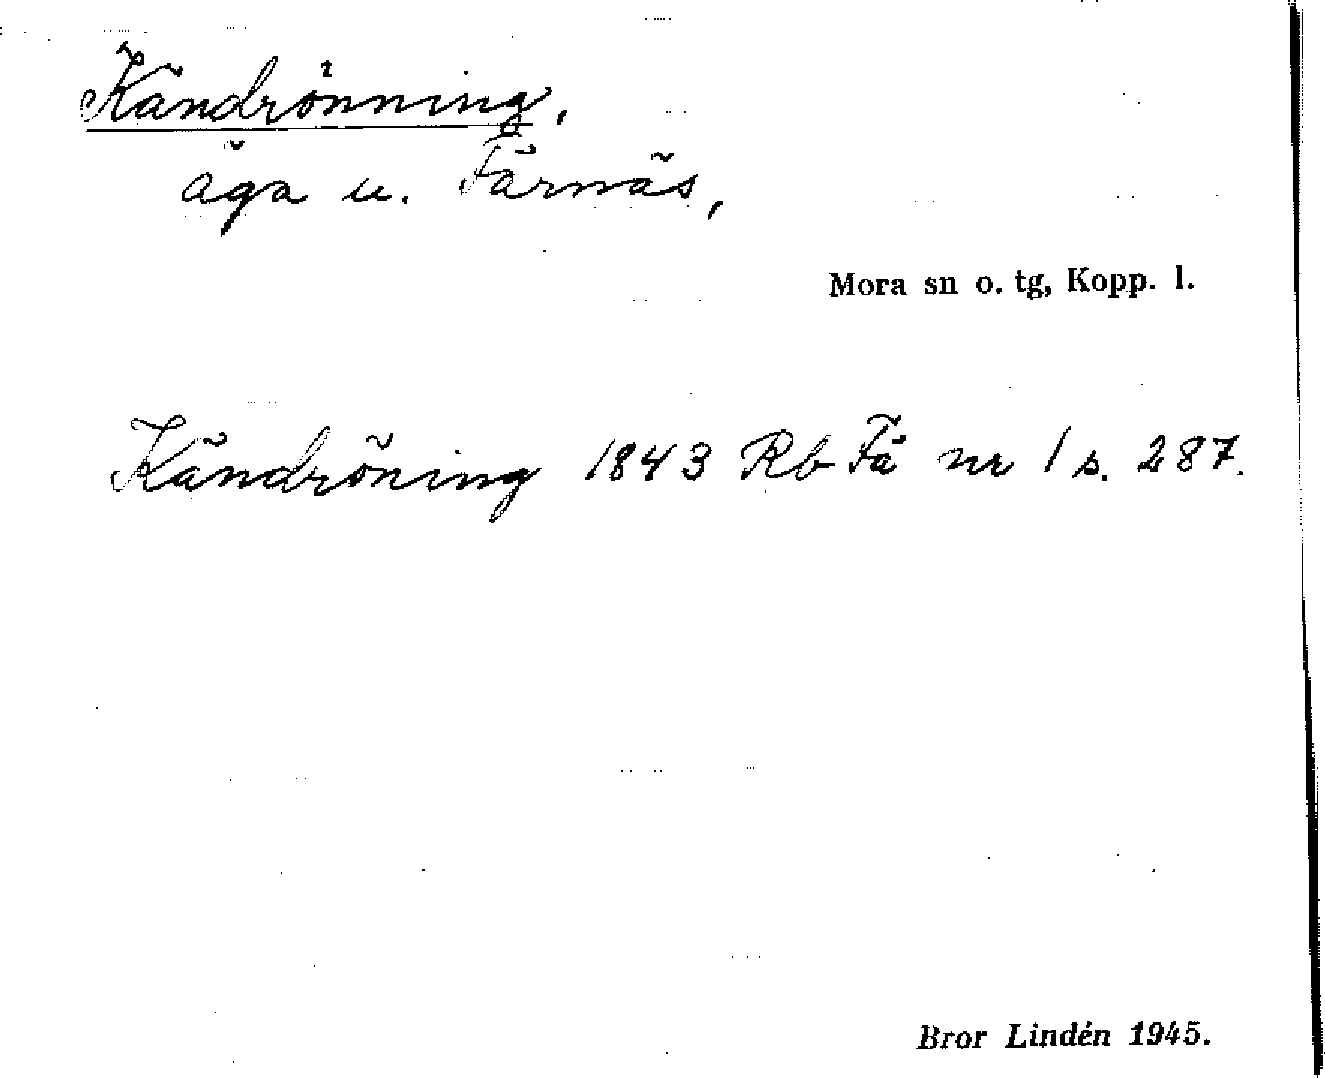 Kändrönning,
äga u. Färnäs,
Mora sn o. tg, Kopp. l.
Kändröning 1843 Rb Fä nr 1 s. 287.
Bror Lindén 1945.